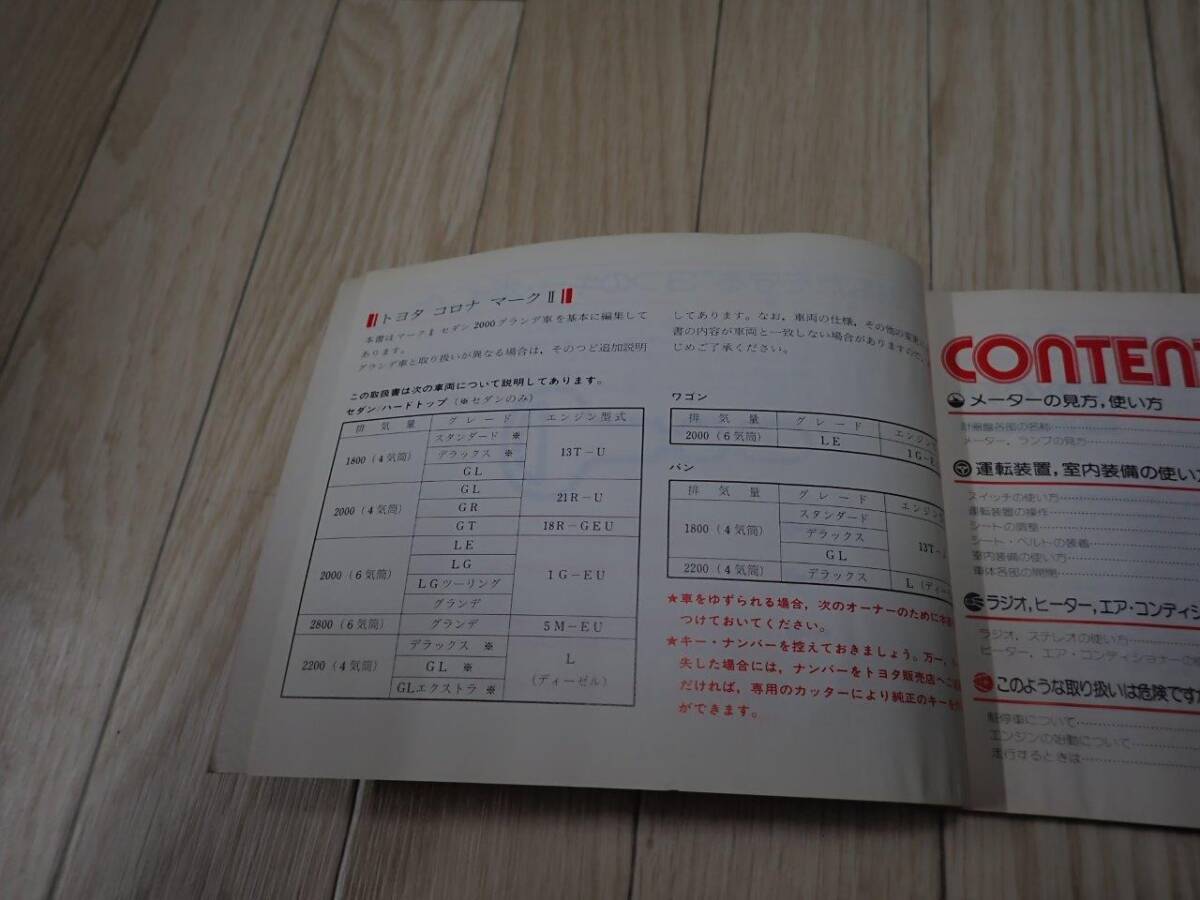 トヨタ コロナ マークⅡ
本書はマークⅡ セダン 2000グランデ車を基本に編集して
あります。
グランデ車と取り扱いが異なる場合は，そのつど追加説明
してあります。なお，車両の仕様，その他の変更
書の内容が車両と一致しない場合がありますので，
じめご了承ください。
この取扱書は次の車両について説明してあります。
セダン/ハードトップ（※セダンのみ）
排気量 グレード エンジン型式
1800（4気筒） スタンダード ※ 13T-U
デラックス ※
GL
2000（4気筒） GL 21R-U
GR
GT 18R-GEU
2000（6気筒） LE 1G-EU
LG
LGツーリング
グランデ
2800（6気筒） グランデ 5M-EU
2200（4気筒） デラックス ※ L
GL ※ （ディーゼル）
GLエクストラ ※
ワゴン
排気量 グレード エンジン
2000（6気筒） LE 1G-E
バン
排気量 グレード エンジン
1800（4気筒） スタンダード 13T-
デラックス
GL
2200（4気筒） デラックス L（ディーゼ
★車をゆずられる場合，次のオーナーのために本
つけておいてください。
★キー・ナンバーを控えておきましょう。万一，
失した場合には，ナンバーをトヨタ販売店へご
だければ，専用のカッターにより純正のキーを
ができます。
CONTENT
メーターの見方，使い方
計器盤各部の名称
メーター，ランプの見方
運転装置，室内装備の使い方
スイッチの使い方
運転装置の操作
シートの調整
シート・ベルトの装着
室内装備の使い方
車体各部の開閉
ラジオ，ヒーター，エア・コンディシ
ラジオ，ステレオの使い方
ヒーター，エア・コンディショナーの
このような取り扱いは危険ですか
駐停車について
エンジンの始動について
走行するときは